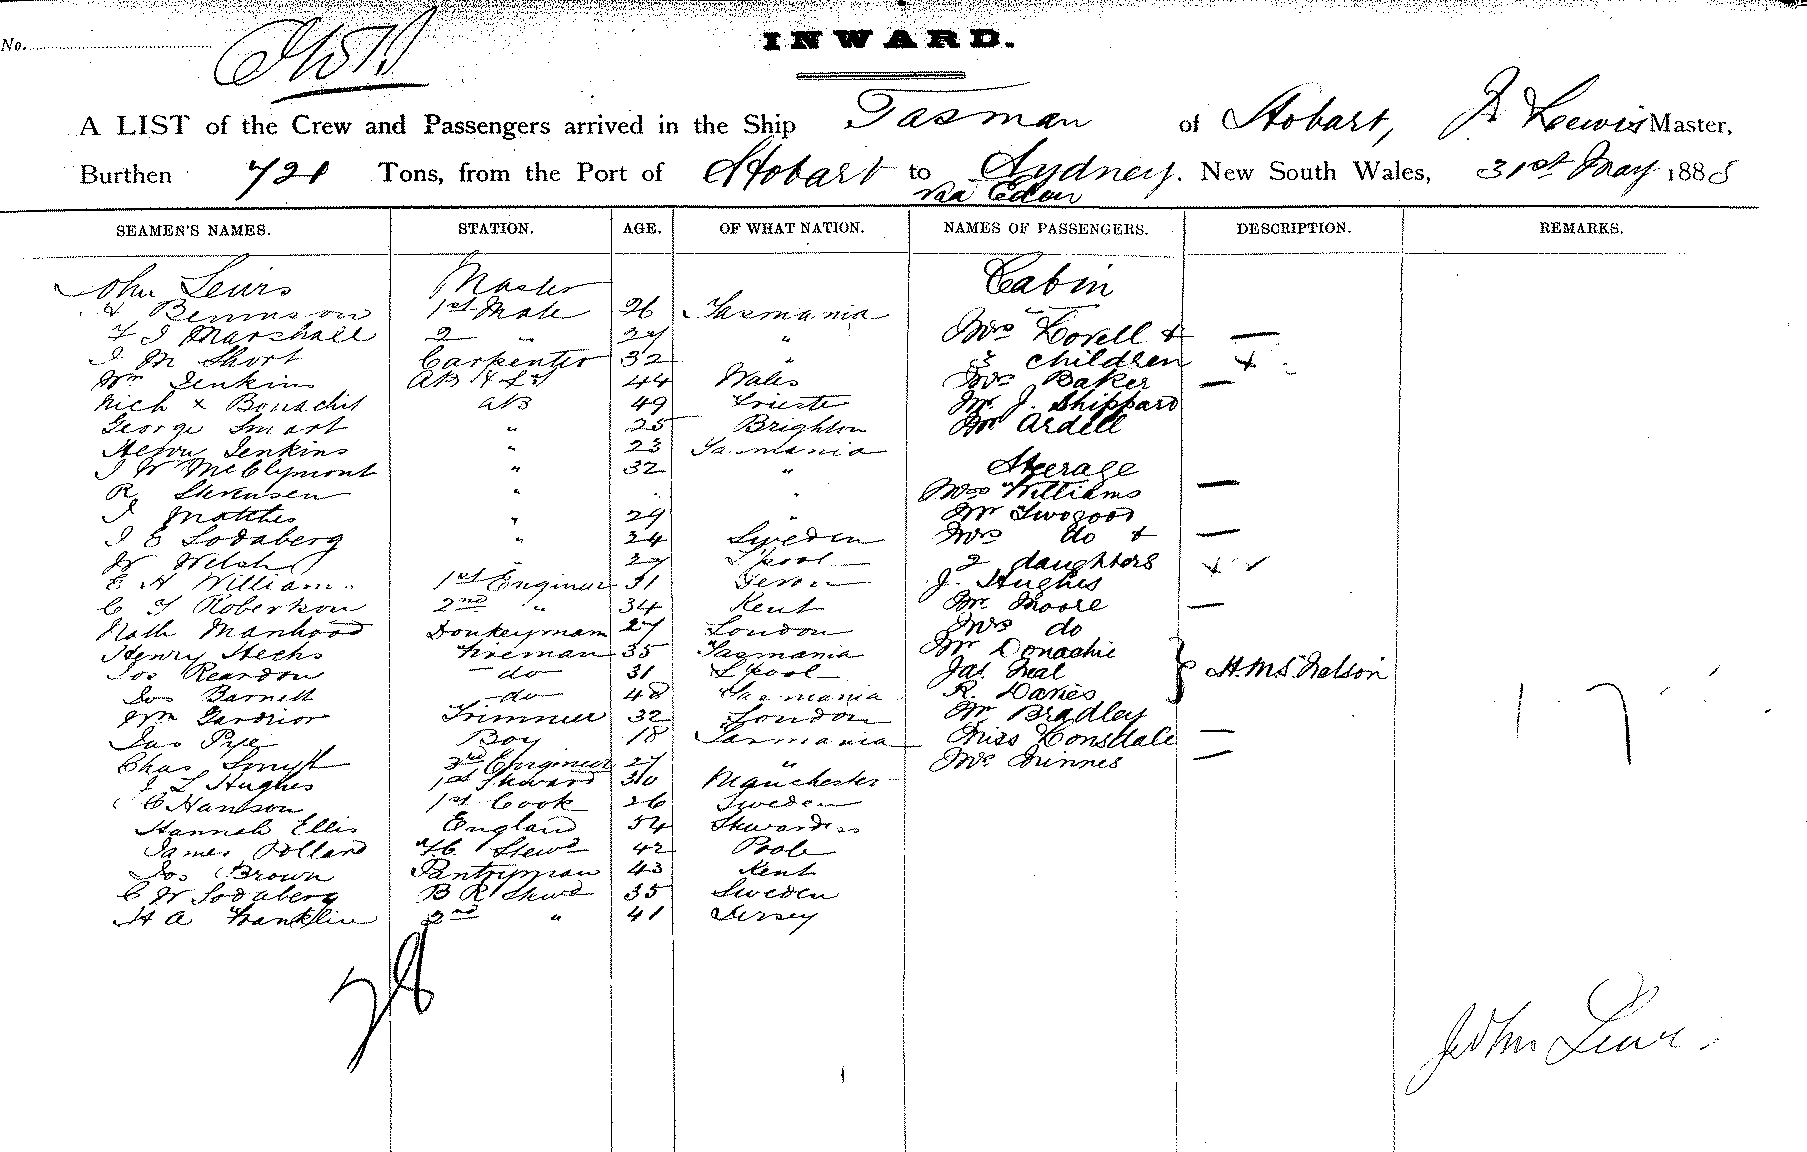 No.
INWARD.
A LIST of the Crew and Passengers arrived in the Ship Tasman of Hobart, J Lewis Master,
Burthen 721 Tons, from the Port of Hobart to Sydney. New South Wales, 31st May 1888
via Eden
SEAMEN'S NAMES. STATION. AGE. OF WHAT NATION. NAMES OF PASSENGERS. DESCRIPTION. REMARKS.
John Lewis Master Cabin
Bennison 1st Mate 26 Tasmania
Marshall 2 " 27 " Mrs Lovell &
J M Short Carpenter 32 " 3 children
Wm Jenkins AB & 44 Wales Mrs Baker
Rich x AB 49 Trieste Mr. J. Shippard
George Smart " 25 Brighton Mr Ardell
Henry Jenkins " 23 Tasmania
J W McClymont " 32 " Steerage
R. " Mrs Williams
J " 29 " Mr Twogood
J E Sodaberg " 24 Sweden Mrs do &
W Welsh 27 L'pool 2 daughters
E H William 1st Engineer 31 Devon J. Hughes
C F Robertson 2nd " 34 Kent Mr Moore
Nath Manhood Donkeyman 27 London Mrs do
Henry Fireman 35 Tasmania Mr Donachie
Jos Reardon do 31 L'pool Jas. Neal } H.M.S. Nelson
Jos Barnett do 48 Tasmania R. Davies
Wm Trimmer 32 London Mr Bradley
Jas Pye Boy 18 Tasmania Miss Lonsdale
Chas Smyth 3rd Engineer 27 "
L Hughes 1st Steward 30 Manchester
C Hanson 1st Cook 26 Sweden
Hannah Ellis England 54 Stewardess
James Pollard Stewd 42 Poole
Jos Brown Pantryman 43 Kent
C W Sodaberg B R Stewd 35 Sweden
H A Franklin 2nd " 41 Jersey
John Lewis